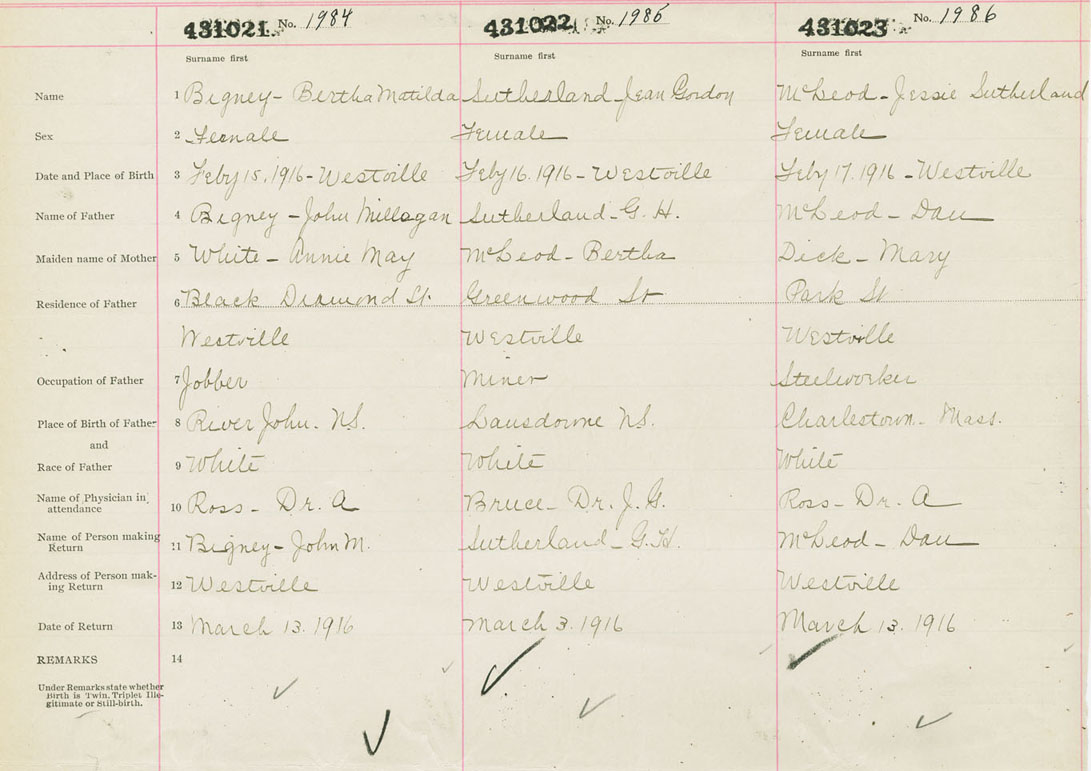 431021 No. 1984 431022 No. 1985 431023 No. 1986
Surname first Surname first Surname first
Name 1 Bigney - Bertha Matilda Sutherland - Jean Gordon McLeod - Jessie Sutherland
Sex 2 Female Female Female
Date and Place of Birth 3 Feby 15. 1916 - Westville Feby 16. 1916 - Westville Feby 17. 1916 - Westville
Name of Father 4 Bigney - John Millagan Sutherland - G. H. McLeod - Dan
Maiden name of Mother 5 White - Annie May McLeod - Bertha Dick - Mary
Residence of Father 6 Black Diamond St. Greenwood St Park St
Westville Westville Westville
Occupation of Father 7 Jobber Miner Steelworker
Place of Birth of Father 8 River John. N.S. Lansdowne N.S. Charlestown. Mass.
and
Race of Father 9 White White White
Name of Physician in
attendance 10 Ross - Dr. A Bruce - Dr. J. G. Ross - Dr. A
Name of Person making
Return 11 Bigney - John M. Sutherland - G. H. McLeod - Dan
Address of Person mak-
ing Return 12 Westville Westville Westville
Date of Return 13 March 13. 1916 March 3. 1916 March 13. 1916
REMARKS 14
Under Remarks state whether
Birth is Twin, Triplet Ille-
gitimate or Still-birth.